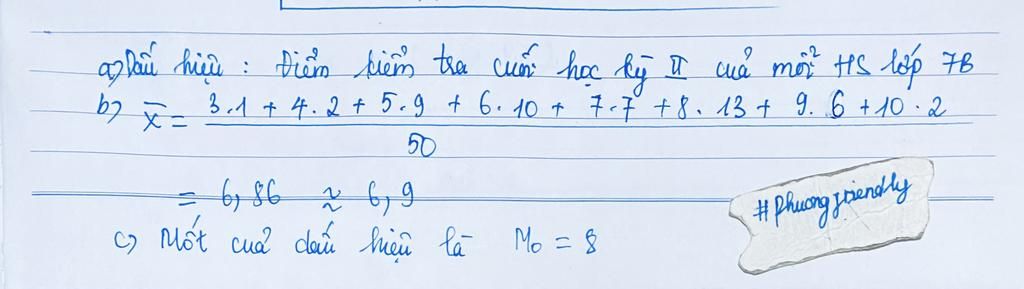 a) Dấu hiệu : Điểm kiểm tra cuối học kỳ II của mỗi HS lớp 7B
b) x̄ = (3.1 + 4.2 + 5.9 + 6.10 + 7.7 + 8.13 + 9.6 + 10.2) / 50
= 6,86 ≈ 6,9
c) Mốt của dấu hiệu là M₀ = 8
#Phuongfriendly